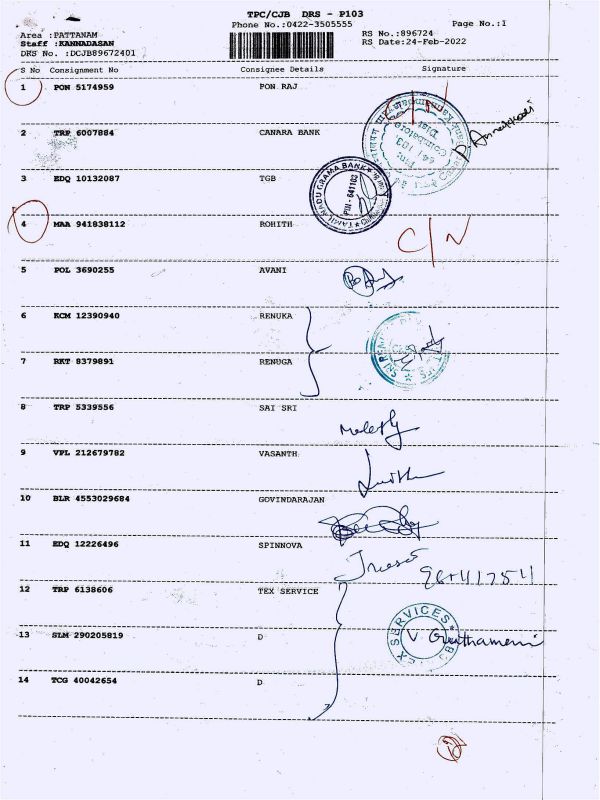 TPC/CJB DRS - P103
Phone No.:0422-3505555
Page No.:I
Area :PATTANAM
Staff :KANNADASAN
DRS No. :DCJB89672401
RS No.:896724
RS Date:24-Feb-2022
S No Consignment No Consignee Details Signature
1 PON 5174959 PON RAJ C/N
2 TRP 6007884 CANARA BANK
3 EDQ 10132087 TGB
TAMIL NADU GRAMA BANK PIN - 641103
4 MAA 941838112 ROHITH C/N
5 POL 3690255 AVANI
6 KCM 12390940 RENUKA
7 RKT 8379891 RENUGA
8 TRP 5339556 SAI SRI
9 VFL 212679782 VASANTH
10 BLR 4553029684 GOVINDARAJAN
11 EDQ 12226496 SPINNOVA
12 TRP 6138606 TEX SERVICE
13 SLM 290205819 D
SERVICES
14 TCG 40042654 D